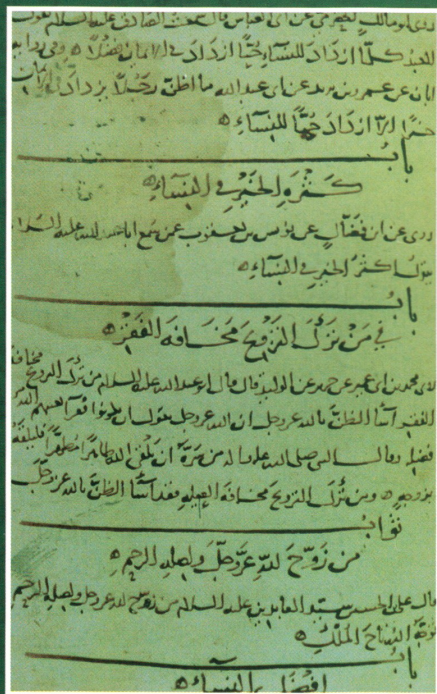 روى ابو مالك الحضرمي عن ابى العباس قال سمعت الصادق عليه السلام يقول
العبد كلّما ازدَادَ للنسَاءِ حُبًّا ازدَادَ في الايمان فضلًا وفي رواية
ابان عن عمر بن يزيد عن ابى عبد الله ما اظنّ رَجُلًا يزدَاد في الايمان
خيرًا الّا ازدَادَ حُبًّا للنسَاءِ
بابُ
كثرة الخَيرِ في النسَاءِ
روى عن ابن فضّال عن يونس بن يعقوب عمن سمع ابا عبد الله عليه السلام
يقول اكثرُ الخير في النسَاءِ
بابُ
في مَنْ تركَ التزويجَ مخافةَ الفَقرِ
روى محمد بن ابى عمير عن عن الوليد قال قال ابو عبد الله عليه السلام من ترك التزويج مخافة
الفقر اسَاءَ الظنّ بالله عز وجل ان الله عز وجل يقول ان يكونوا فقراء يغنهم الله
فضله وقال النبى صلى الله عليه واله من سَرّه ان يلقى الله طاهرًا مُطهّرًا فليلقهُ
بزوجةٍ ومن تركَ التزويج مخافة العيلة فقد اسَاءَ الظنّ بالله عز وجلّ
ثوابُ
من زَوّجَ للهِ عزّ وجلّ ولصلة الرحم
قال على بن الحسين سيد العابدين عليه السلام من زوّج لله عز وجل ولصلة الرحم
توّجَهُ اللهُ تاجَ المُلكِ
بابُ
افضل النسَاءِ